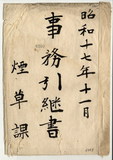 昭和十七年十一月
事務引継書
煙草課